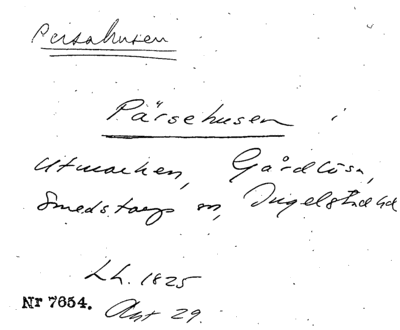 Persahusen
Pärsehusen i
utmarken, Gårdlösa,
Smedstorps sn, Ingelstad hd
Lh. 1825
Nr 7654. Akt 29.